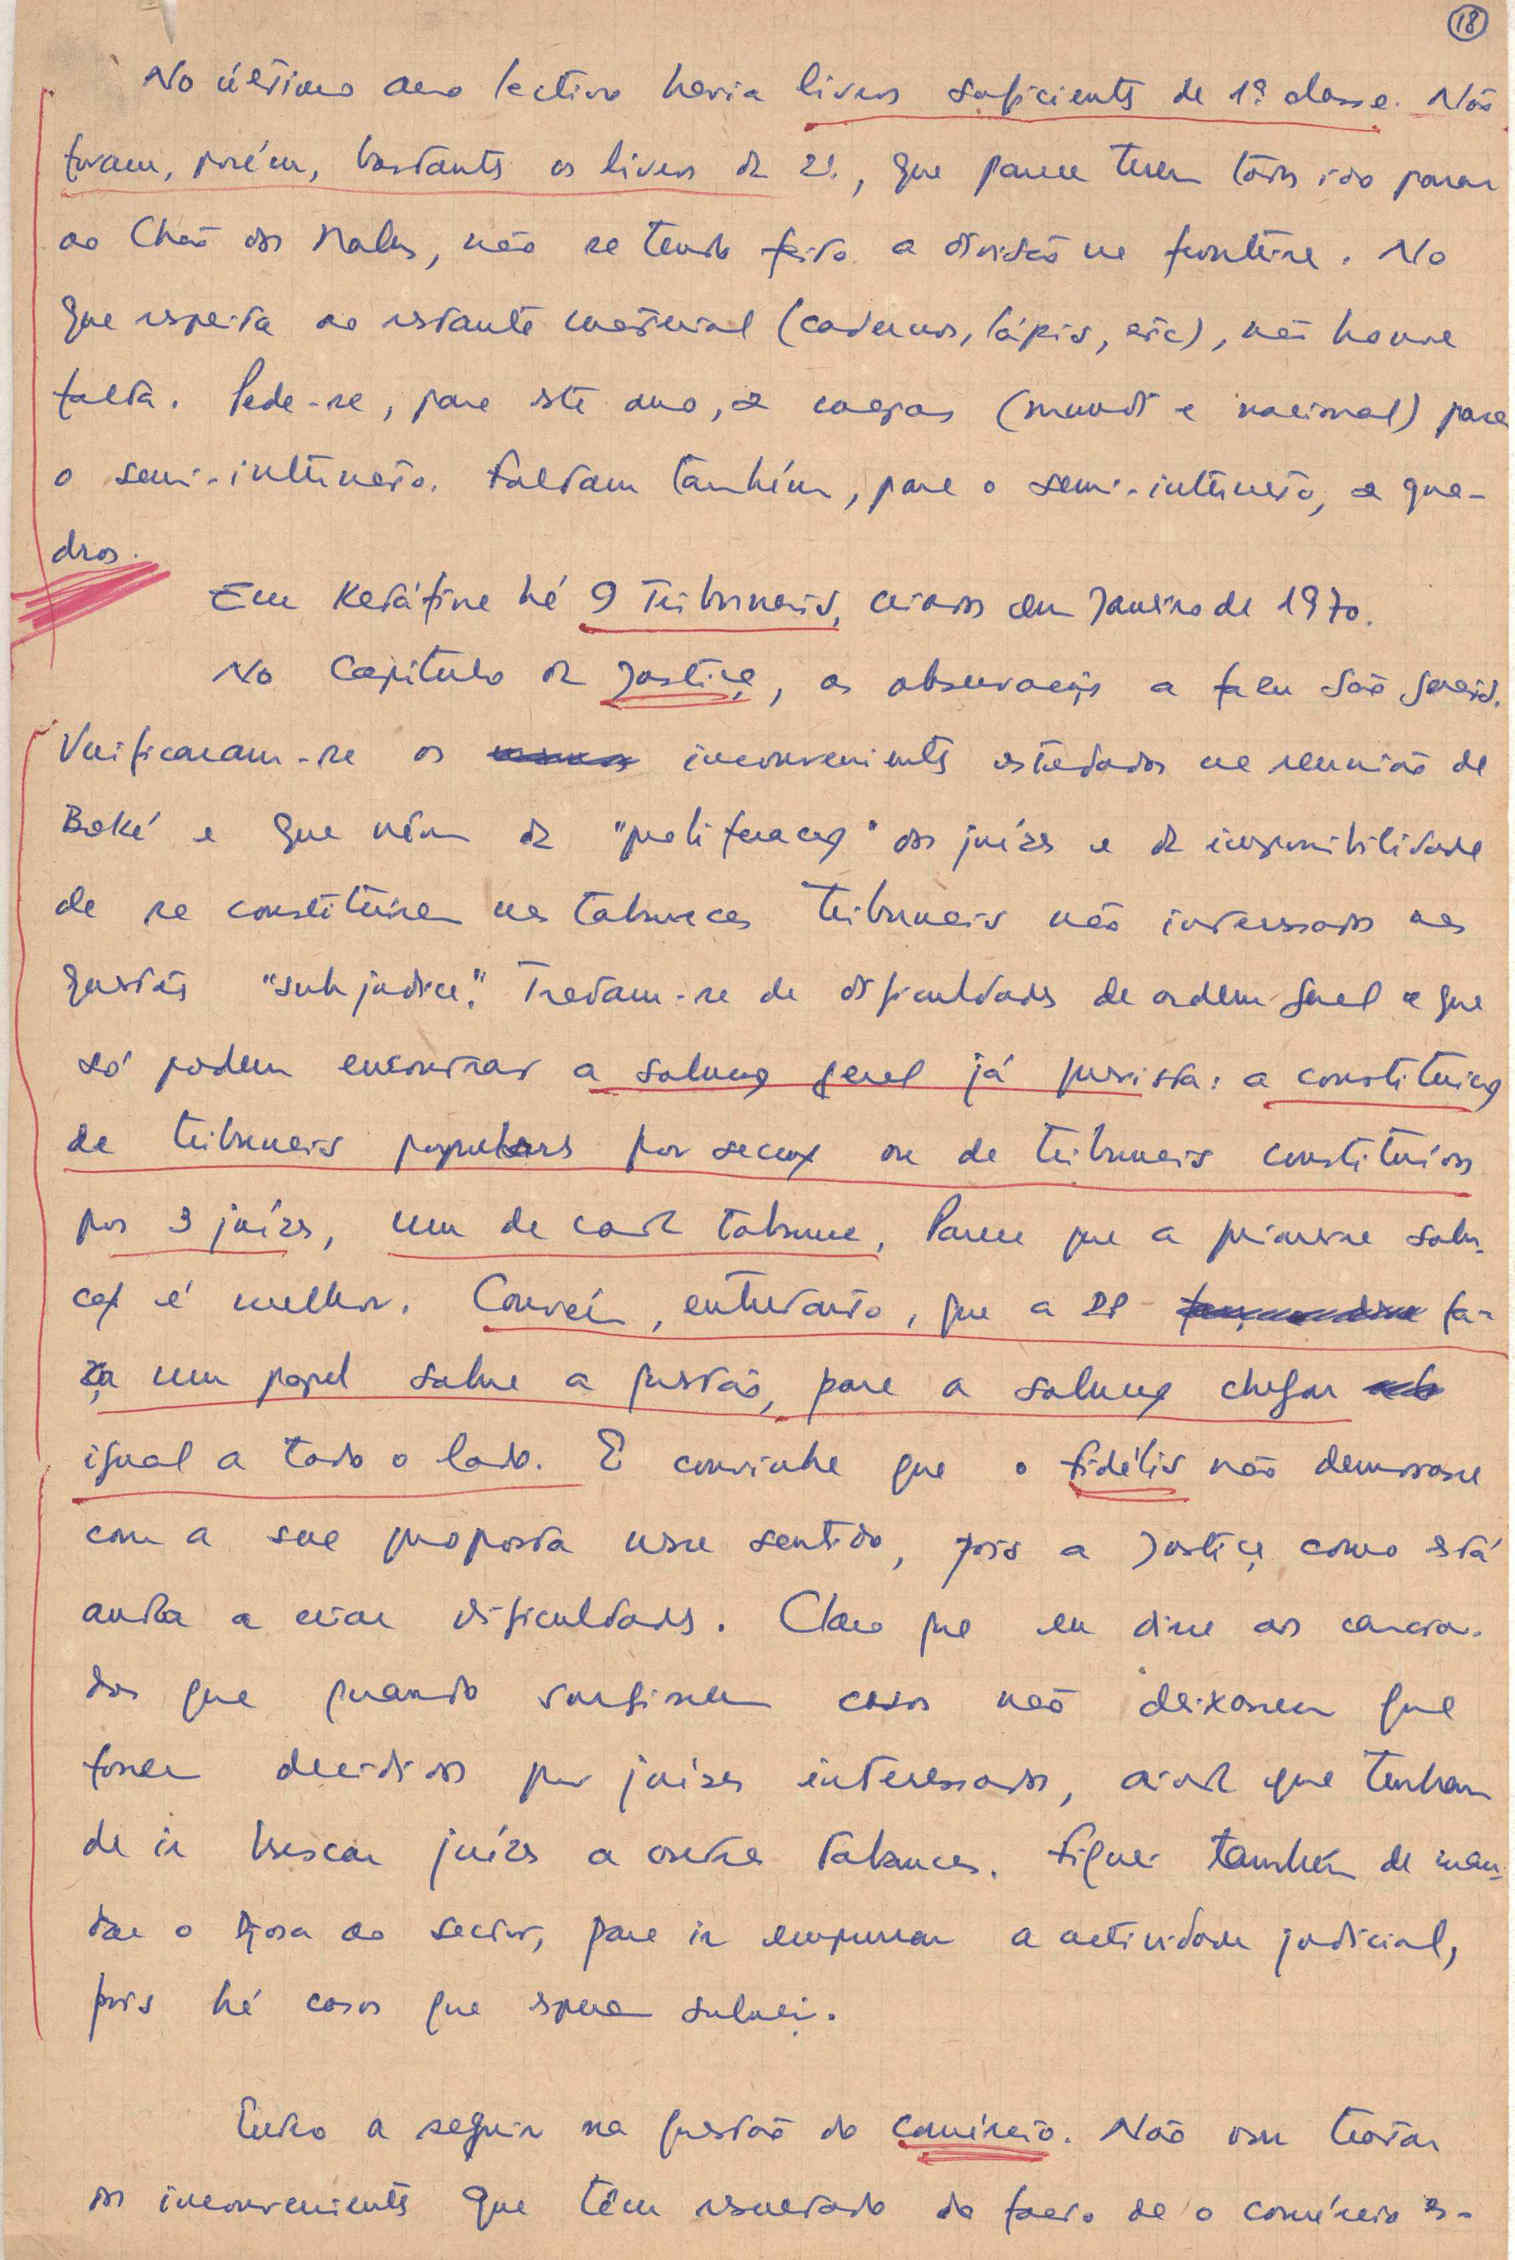 18
No último ano lectivo havia livros suficientes de 1ª classe. Não
foram, porém, bastantes os livros da 2ª, que parece terem todos ido parar
ao Chão dos Nalus, não se tendo feito a divisão na fronteira. No
que respeita ao restante material (cadernos, lápis, etc), não houve
falta. Pede-se, para este ano, mapas (mundi e nacional) para
o semi-internato. Faltam também, para o semi-internato, qua-
dros.
Em Ketáfine há 9 Tribunais, criados em Janeiro de 1970.
No Capítulo da Justiça, as observações a fazer são gerais.
Verificaram-se os inconvenientes na reunião de
Boké e que vêm da "proliferação" dos juízes e da impossibilidade
de se constituirem nas tabancas tribunais não interessados nas
questões "sub judice". Tratam-se de dificuldades de ordem geral e que
só podem encontrar a solução geral já prevista: a constituição
de tribunais populares por secção ou de tribunais constituídos
por 3 juízes, um de cada tabanca. Parece que a primeira solu-
ção é melhor. Convém, entretanto, que a DP fa-
ça um papel sobre a questão, para a solução chegar
igual a todo o lado. E convinha que o Fidélis não demorasse
com a sua proposta nesse sentido, pois a Justiça como está
anda a criar dificuldades. Claro que eu disse aos camara-
das que quando surgirem casos não deixassem que
fossem decididos por juízes interessados, ainda que tenham
de ir buscar juízes a outras tabancas. Fiquei também de man-
dar o ao sector, para ir empurrar a actividade judicial,
pois há casos que esperam solução.
Entro a seguir na questão do comércio. Não vou tratar
os inconvenientes que têm resultado do facto de o comércio es-